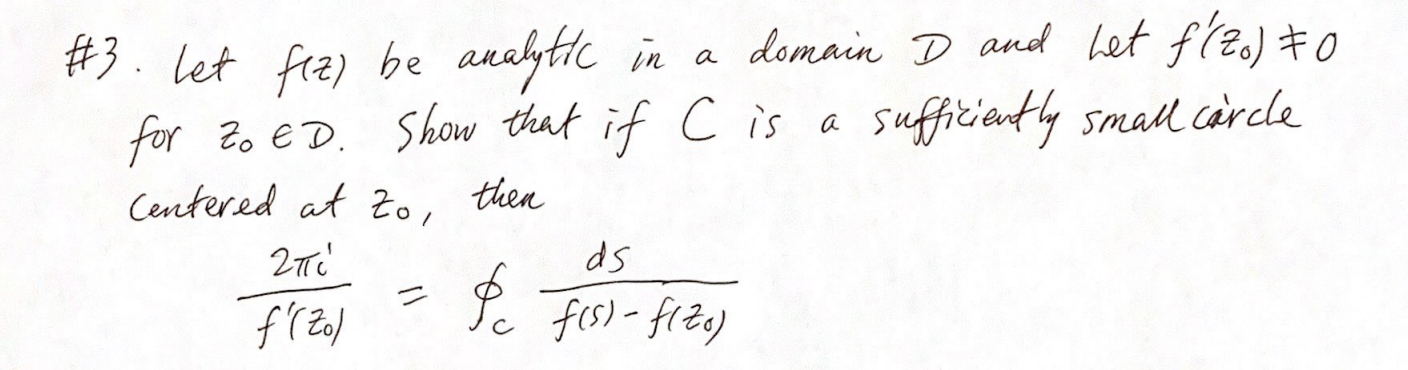 #3. Let f(z) be analytic in a domain D and let f'(z₀) ≠ 0
for z₀ ∈ D. Show that if C is a sufficiently small circle
centered at z₀, then
2πi / f'(z₀) = ∮_C ds / f(s) - f(z₀)